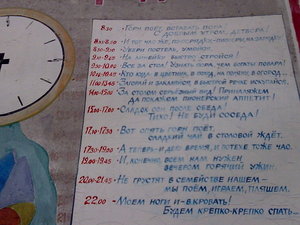 8.30 - Горн поёт, вставать пора!
С добрым утром, детвора!
8.30-8.50 - И тот час же, по порядку
8.50-9.00 - Убери постель, умойся.
9.00-9.10 - На линейку быстро стройся!
9.10-10.00 - Все за стол! Узнать пора, чем богаты повара!
10.00-11.45 - Кто куда: в цветник, в поход, на поляну, в огород...
11.45-13.45 - Загорай и закаляйся, в быстрой речке искупайся.
14.00-15.00 - За столом серьёзный вид! Принажмём
Да покажем пионерский аппетит!
15.00-17.00 - Сладок сон после обеда!
Тихо! Не буди соседа!
17.00-17.30 - Вот опять горн поёт,
сладкий чай в столовой ждёт.
17.30-19.00 - А теперь и делу время, и потехе тоже час.
19.00-19.45 - И, конечно, всем нам нужен
вечером горячий ужин.
20.00-21.45 - Не грустят в семействе нашем -
мы поём, играем, пляшем.
22.00 - Моем ноги и - в кровать!
Будем крепко-крепко спать...